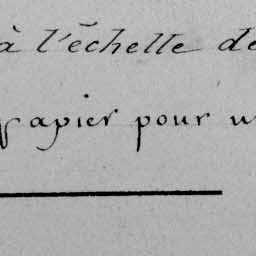 à l'échelle de
papier pour u